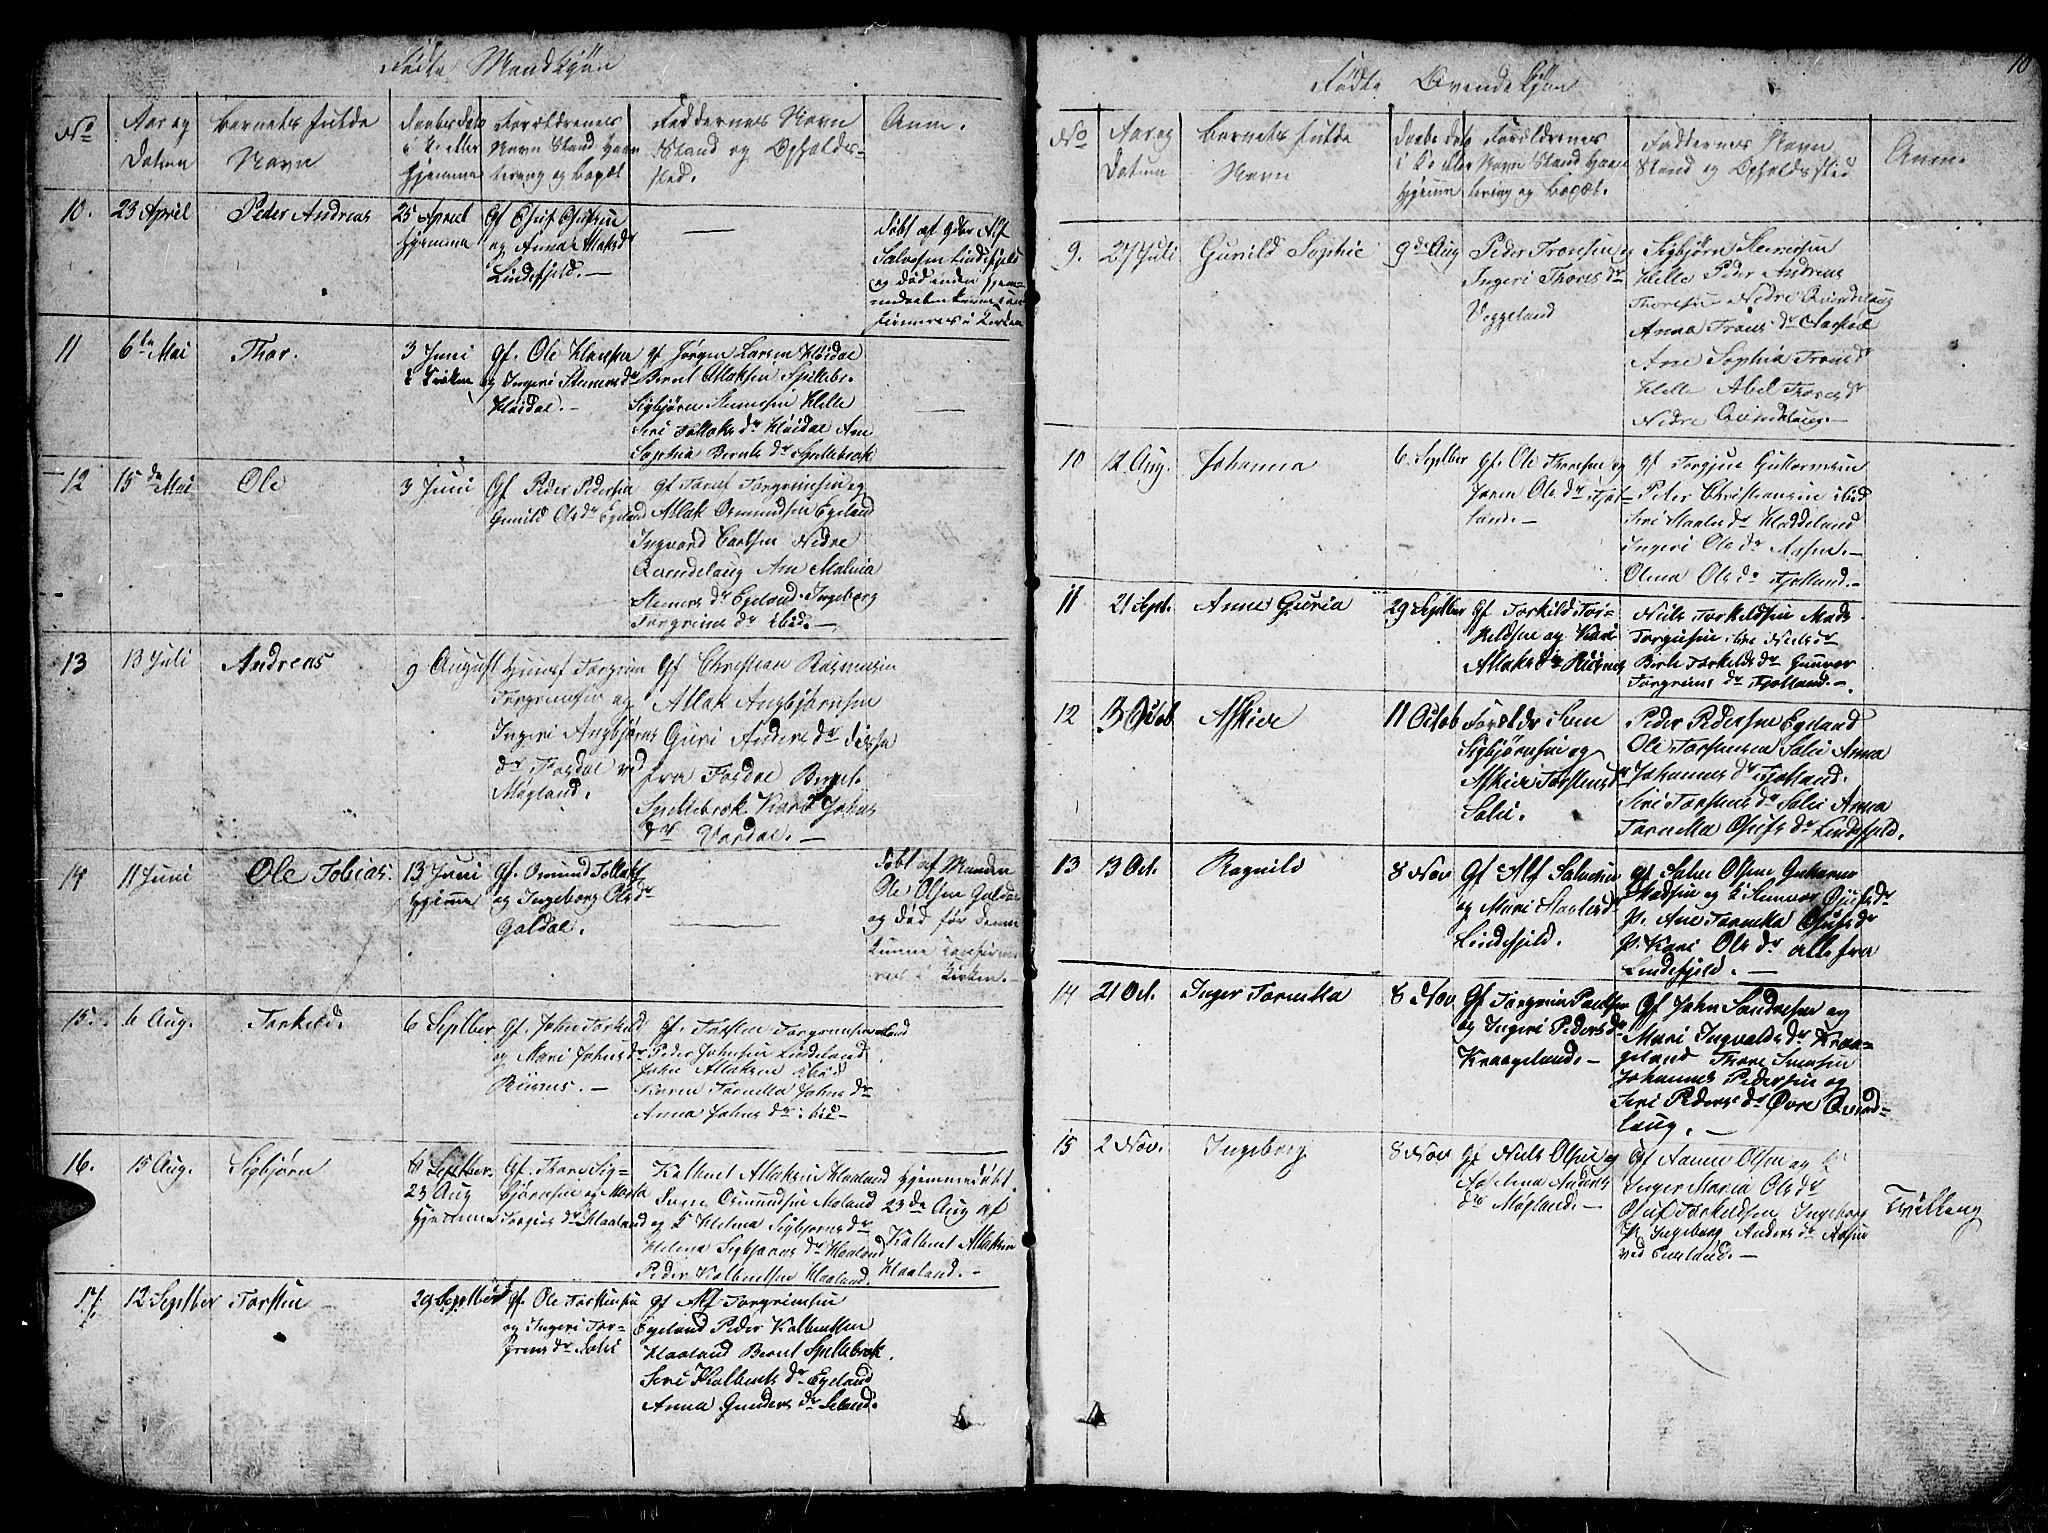 Fødte Mandkjøn
No
Aar og
Datum
Barnets fulde
Navn
Daabs Dato
i K eller
Hjemme
Forældrenes
Navn Stand Haan
tering og Bopæl
Faddernes Navn
Stand og Opholds-
sted.
Anm.
10.
23 April
Peder Andreas
25 April
hjemme
Gf
og Anna Aslaksdr
Lindefjeld.-
Døbt af Gdm Alf
Salvesen Lindefjeld
og død
i Kirken
11
6te Mai
Thor.
3 Juni
i Kirken
Gf. Ole Hansen
og Ingeri Steners dr
Høidal.-
Gf Jørgen Larsen Høidal
Bernt Atlaksen Spillebr.
Sigbjørn Stenersen Helle
Siri Tollaks dr Høidal Ane
Sophia Bernts dr Spillebrok
12
15 de Mai
Ole
3 Juni
Gf Peder Pedersen
Gunild Ols dr Egeland
Gf Torgrimsen og
Atlak Osmundsen Egeland
Ingvard Carlsen Nedre
Qvindelaug Ane Malena
Steners dr Egeland Ingeborg
Torgrims dr ibid.-
13
13 Juli
Andreas
9 August
Torgrim
Torgrimsen og
Ingeri Angbjørns
dr Fardal ved
Møgland.
Gf Christian Rasmusen
Atlak Angbjørnsen
Guri Anders dr disse
fra Fardal Bernt
Spillebrok Karo Johns
dr Vardal.-
14
11 Juni
Ole Tobias.
13 Juni
hjemme
Gf. Osmund Tollaks
og Ingeborg Ols dr
Galdal.
Døbt af Manden
Ole Olsen Galdal
og død før denne
kunne
i Kirken.-
15.
6 Aug.
Torkild.
6 Septber
Gf. John Torkild
og Mari Johns dr
Riisnes.-
Gf. Torsten Torgrimsen
Peder Johnsen Lindeland
John Atlaksen ibid
Karen Tomella Johns dr
Anna Johns dr ibid-
16.
15 Aug.
Sigbjørn
6 Septber
23 Aug
hjemme
Gf. Thore Sig-
bjørnsen og Marta
Torgius dr Haaland
Kalbent Atlaksen Haaland
Sven Osmundsen Møland
og P Helena Sigbjørns dr
Helena Sigbjørns dr Haaland
Peder Kalbentsen Haaland.
Hjemmedøbt
23 de Aug af
Kalbent Atlaksen
Haaland.-
17.
12 Septber
Torsten
29 Septber
Gf. Ole Torstensen
og Ingeri Tor-
grims dr Solie
Gf Alf Torgrimsen
Egeland Peder Kalbentsen
Haaland Bernt Spillebrok.
Siri Kalbents dr Egeland
Anna Gunders dr
10
Fødte Qvindekjøn
No
Aar og
Datum
Barnets fulde
Navn
Daabs Dato
i K eller
Hjemme
Forældrenes
Navn Stand Haan
tering og Bopæl.
Faddernes Navn
Stand og Opholdssted
Anm.
9.
27 Juli
Gunild Sophie
9 de Aug
Peder Tronsen og
Ingeri Thores dr
Veggeland
Sigbjørn Stenersen
Helle Peder Andreas
Thoresen Nedre Qvindelaug
Anna Trons dr
Ane Sophia Trons dr
Helle Abel Thores dr
Nedre Qvindelaug.-
10
12 Aug.
Johanna
6. Septber
Gf. Ole Thorsen og
Joren Ols dr Fjot-
land.-
Gf Torgjus Guttormsen
Peter Christiansen ibid
Siri Staales dr Haddeland
Ingeri Ols dr Aasen.-
Olena Ols dr Fjotland.-
11
21 Sept.
Anne Guria
29 Septber
Gf Torkild Tor-
kildsen og Kari
Atlaks dr Riisnes
Niels Torkildsen Mads
Torgiusen Siri Niels dr
Berte Torkilds dr Gunvor
Torgrims dr Fjotland.-
12
13 Octob
Askier
11 Octob
Foræld Sven
Sigbjørnsen og
Askier Torstens dr
Solie.
Peder Pedersen Egeland
Ole Torstensen Solie Anna
Johannes dr Fjotland.
Siri Torstens dr Solie Anna
Tornella Osufs dr Lindefjeld.
13
13 Oct.
Ragnild
8 Nov
Gf Alf Salvesen
og Mari Staales dr
Lindefjeld.
Gf Salve Olsen Guttorm
og P Gunvor Osufs dr
P. Ane Tornella Osufs dr
P. Kari Ols dr alle fra
Lindefjeld.-
14
21 Oct.
Inger Tornella
8 Nov
Gf Torgrim Paulsen
og Ingeri Peders dr
Kraageland.-
Gf John Sandresen og
Mari Ingvalds dr Kraa-
geland Thore Svensen
Johannes Pedersen og
Siri Peders dr Øvre Qvind-
laug.-
15
2 Nov.
Ingeborg.
8 Nov
Gf Niels Olsen og
Aaselena Anders
dr Møgland.-
Gf Aanen Olsen og P
Inger Maria Ols dr
Osuf Torkildsen Ingeborg
P Ingeborg Anders dr Aasen
ved
Tvilling